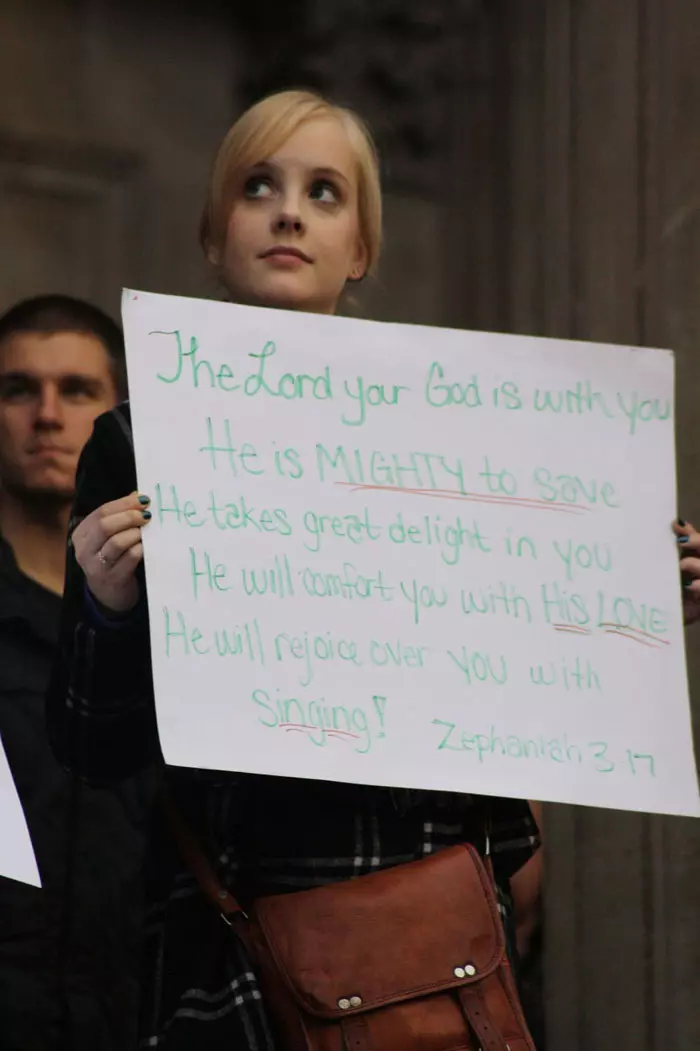 The Lord your God is with you
He is MIGHTY to save
He takes great delight in you
He will comfort you with His LOVE
He will rejoice over YOU with
Singing!
Zephaniah 3 17